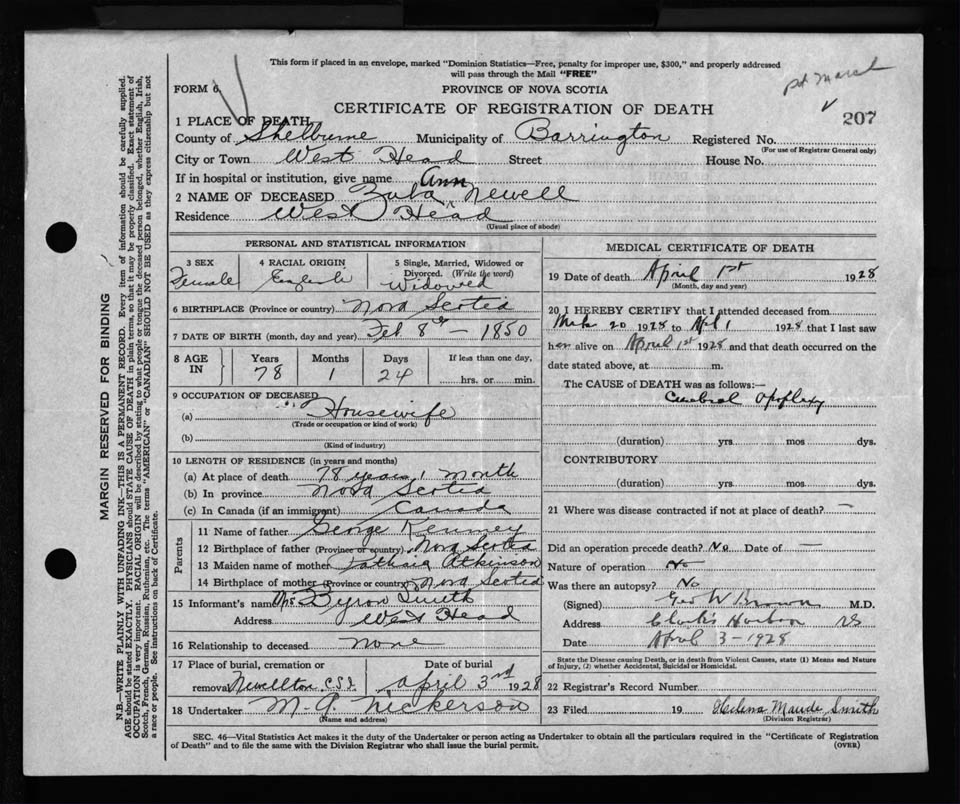 This form if placed in an envelope, marked "Dominion Statistics—Free, penalty for improper use, $300," and properly addressed
will pass through the Mail "FREE"
FORM 6 PROVINCE OF NOVA SCOTIA
CERTIFICATE OF REGISTRATION OF DEATH
207
1 PLACE OF DEATH
County of Shelburne Municipality of Barrington Registered No.
(For use of Registrar General only)
City or Town West Head Street House No.
If in hospital or institution, give name
2 NAME OF DECEASED Zula Ann Newell
Residence West Head
(Usual place of abode)
PERSONAL AND STATISTICAL INFORMATION
3 SEX 4 RACIAL ORIGIN 5 Single, Married, Widowed or
Divorced. (Write the word)
Female English Widowed
6 BIRTHPLACE (Province or country) Nova Scotia
7 DATE OF BIRTH (month, day and year) Feb 8th — 1850
8 AGE IN Years Months Days If less than one day,
78 1 24 hrs. or min.
9 OCCUPATION OF DECEASED
(a) Housewife
(Trade or occupation or kind of work)
(b)
(Kind of industry)
10 LENGTH OF RESIDENCE (in years and months)
(a) At place of death 78 years 1 month
(b) In province Nova Scotia
(c) In Canada (if an immigrant) Canada
Parents
11 Name of father George Kenney
12 Birthplace of father (Province or country) Nova Scotia
13 Maiden name of mother Atkinson
14 Birthplace of mother (Province or country) Nova Scotia
15 Informant's name Byron Smith
Address West Head
16 Relationship to deceased none
17 Place of burial, cremation or Date of burial
removal Newellton C.S.I. April 3rd 1928
18 Undertaker M. A. Nickerson
(Name and address)
MEDICAL CERTIFICATE OF DEATH
19 Date of death April 1st 1928
(Month, day and year)
20 I HEREBY CERTIFY that I attended deceased from
Mch 20 1928 to Apl 1 1928 that I last saw
her alive on April 1st 1928 and that death occurred on the
date stated above, at m.
The CAUSE of DEATH was as follows:—
Cerebral Apoplexy
(duration) yrs. mos. dys.
CONTRIBUTORY
(duration) yrs. mos. dys.
21 Where was disease contracted if not at place of death? —
Did an operation precede death? No Date of —
Nature of operation No
Was there an autopsy? No
(Signed) Geo W Brown M.D.
Address Clark's Harbour NS
Date April 3 - 1928
State the Disease causing Death, or in death from Violent Causes, state (1) Means and Nature
of Injury, (2) whether Accidental, Suicidal or Homicidal.
22 Registrar's Record Number
23 Filed 19 Maude Smith
(Division Registrar)
SEC. 46—Vital Statistics Act makes it the duty of the Undertaker or person acting as Undertaker to obtain all the particulars required in the "Certificate of Registration
of Death" and to file the same with the Division Registrar who shall issue the burial permit.
(OVER)
MARGIN RESERVED FOR BINDING
N.B.—WRITE PLAINLY WITH UNFADING INK—THIS IS A PERMANENT RECORD. Every item of information should be carefully supplied.
AGE should be stated EXACTLY. PHYSICIANS should STATE CAUSE OF DEATH in plain terms, so that it may be properly classified. Exact statement of
OCCUPATION is very important. RACIAL ORIGIN will be described by stating to what people or tongue the deceased person belonged, whether English, Irish,
Scotch, French, German, Russian, Ruthenian, etc. The terms "AMERICAN" or "CANADIAN" SHOULD NOT BE USED as they express citizenship but not
a race or people. See instructions on back of Certificate.